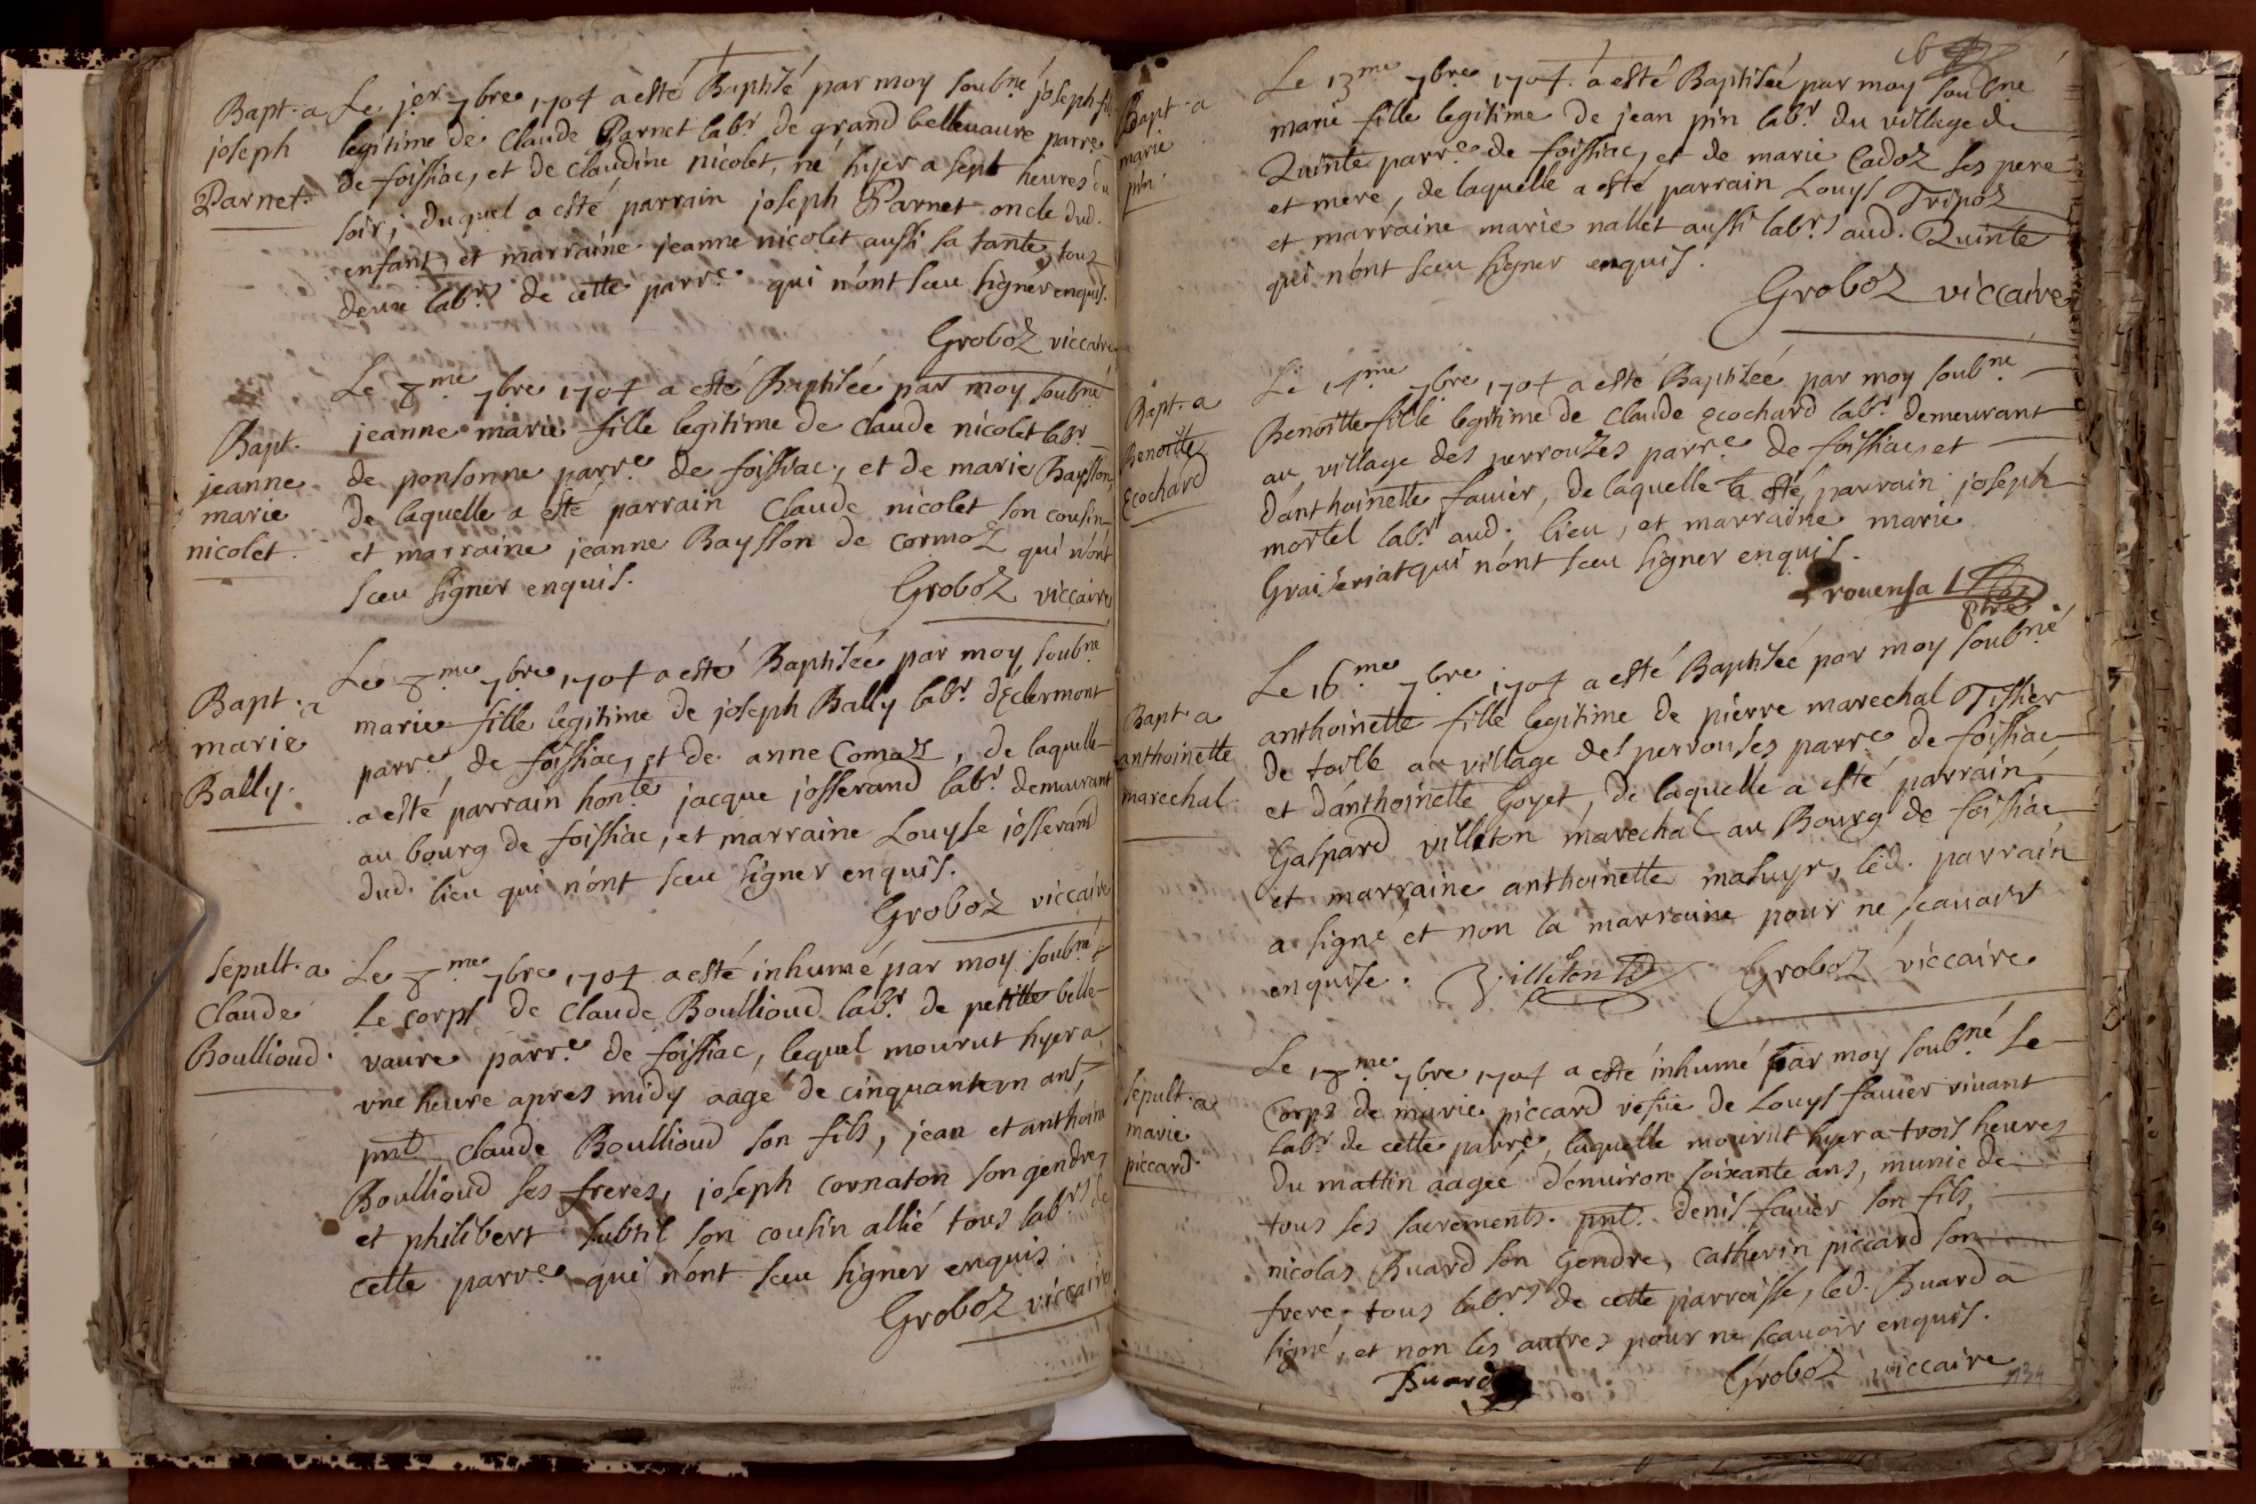 Bapt. a
joseph
Parnet.
Le jer 7bre 1704 a esté Baptisé par moy soubné joseph fils
legitime de Claude Parnet labr de grand bellevaure parre
de foissiac, et de Claudine nicolet, né hyer a sept heures du
soir, duquel a esté parrain joseph Parnet oncle dud.
enfant, et marraine jeanne nicolet aussi sa tante, tous
deux labrs de cette parre qui n'ont sceu signer enquis.
Groboz viccaire
Bapt.
jeanne
marie
nicolet.
Le 8me 7bre 1704 a esté Baptisée par moy soubné
jeanne marie fille legitime de Claude nicolet labr
de ponsonne parre de foissiac, et de marie Baysson,
de laquelle a esté parrain Claude nicolet son cousin
et marraine jeanne Baysson de cormoz qui n'ont
sceu signer enquis.
Groboz viccaire
Bapt. a
marie
Bally.
Le 8me 7bre 1704 a esté Baptisée par moy soubné
marie fille legitime de joseph Bally labr d'Eclermont
parre de foissiac, et de anne Comaz, de laquelle
a esté parrain honte jacque josserand labr demeurant
au bourg de foissiac, et marraine Louyse josserand
dud. lieu qui n'ont sceu signer enquis.
Groboz viccaire
sepult. a
Claude
Boullioud.
Le 8me 7bre 1704 a esté inhumé par moy soubné
le corps de Claude Boullioud labr de petitte belle-
vaure parre de foissiac, lequel mourut hyer a
vne heure apres midy aagé de cinquante vn ans,
pnt Claude Boullioud son fils, jean et anthoine
Boullioud ses freres, joseph cornaton son gendre,
et philibert subtil son cousin allié tous labrs de
cette parre qui n'ont sceu signer enquis.
Groboz viccaire
Bapt. a
marie
pin.
Le 13me 7bre 1704 a esté Baptisée par moy soubné
marie fille legitime de jean pin labr du village de
Quinte parre de foissiac, et de marie Cadoz ses pere
et mere, de laquelle a esté parrain Louys Tripoz
et marraine marie nallet aussi labrs aud. Quinte
qui n'ont sceu signer enquis.
Groboz viccaire
Bapt. a
Benoitte
Ecochard
Le 14me 7bre 1704 a esté Baptisée par moy soubné
Benoitte fille legitime de Claude Ecochard labr demeurant
au village des perrouses parre de foissiac, et
d'anthoinette favier, de laquelle a esté parrain joseph
mortel labr aud. lieu, et marraine marie
Graiseriat qui n'ont sceu signer enquis.
Prouensal
ptre
Bapt. a
anthoinette
marechal.
Le 16me 7bre 1704 a esté Baptisée par moy soubné
anthoinette fille legitime de pierre marechal Tissier
de toille au village des perrouses parre de foissiac
et d'anthoinette Goyet, de laquelle a esté parrain
Gaspard villeton marechal au Bourg de foissiac
et marraine anthoinette masuyr, led. parrain
a signé et non la marraine pour ne sçavoir
enquise. Villeton Groboz viccaire
sepult. a
marie
piccard.
Le 18me 7bre 1704 a esté inhumé par moy soubné le
Corps de marie piccard vefue de Louys favier vivant
labr de cette parre, laquelle mourut hyer a trois heures
du mattin aagée d'environ soixante ans, munie de
tous ses sacrements. pnt. denis favier son fils,
nicolas Buard son Gendre, Catherin piccard son
frere, tous labrs de cette parroisse, led. Buard a
signé, et non les autres pour ne scavoir enquis.
Buard Groboz viccaire